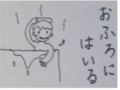 おふろに
はいる